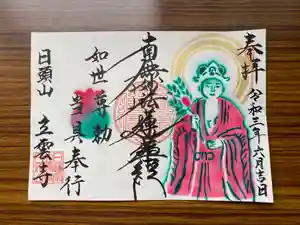 奉拝
令和三年六月吉日
南無妙法蓮華経
如世尊勅
当具奉行
日頭山
立雲寺